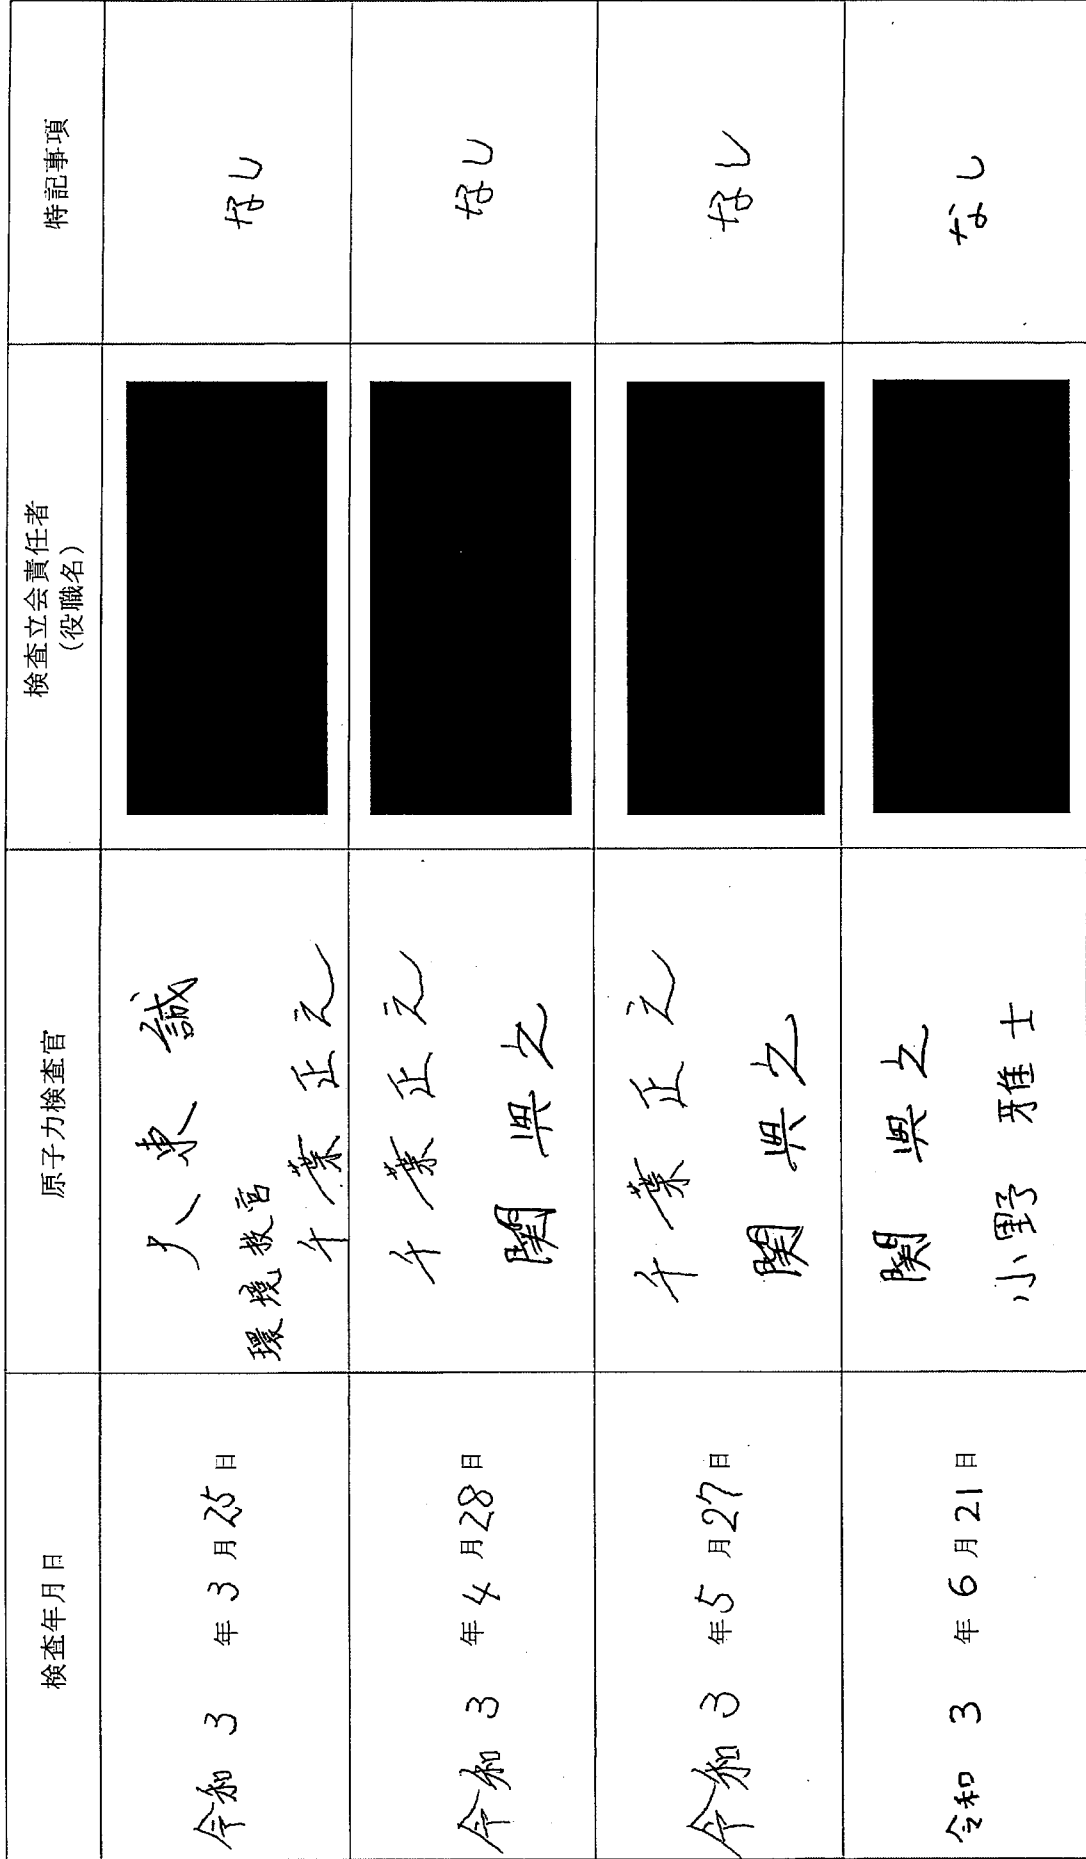 検査年月日
原子力検査官
検査立会責任者
(役職名)
特記事項
令和 3 年 3 月 25 日
東 誠
千葉 正
なし
令和 3 年 4 月 28 日
千葉 正
関 之
なし
令和 3 年 5 月 27 日
千葉 正
関 之
なし
令和 3 年 6 月 21 日
関 之
小野 雅士
なし